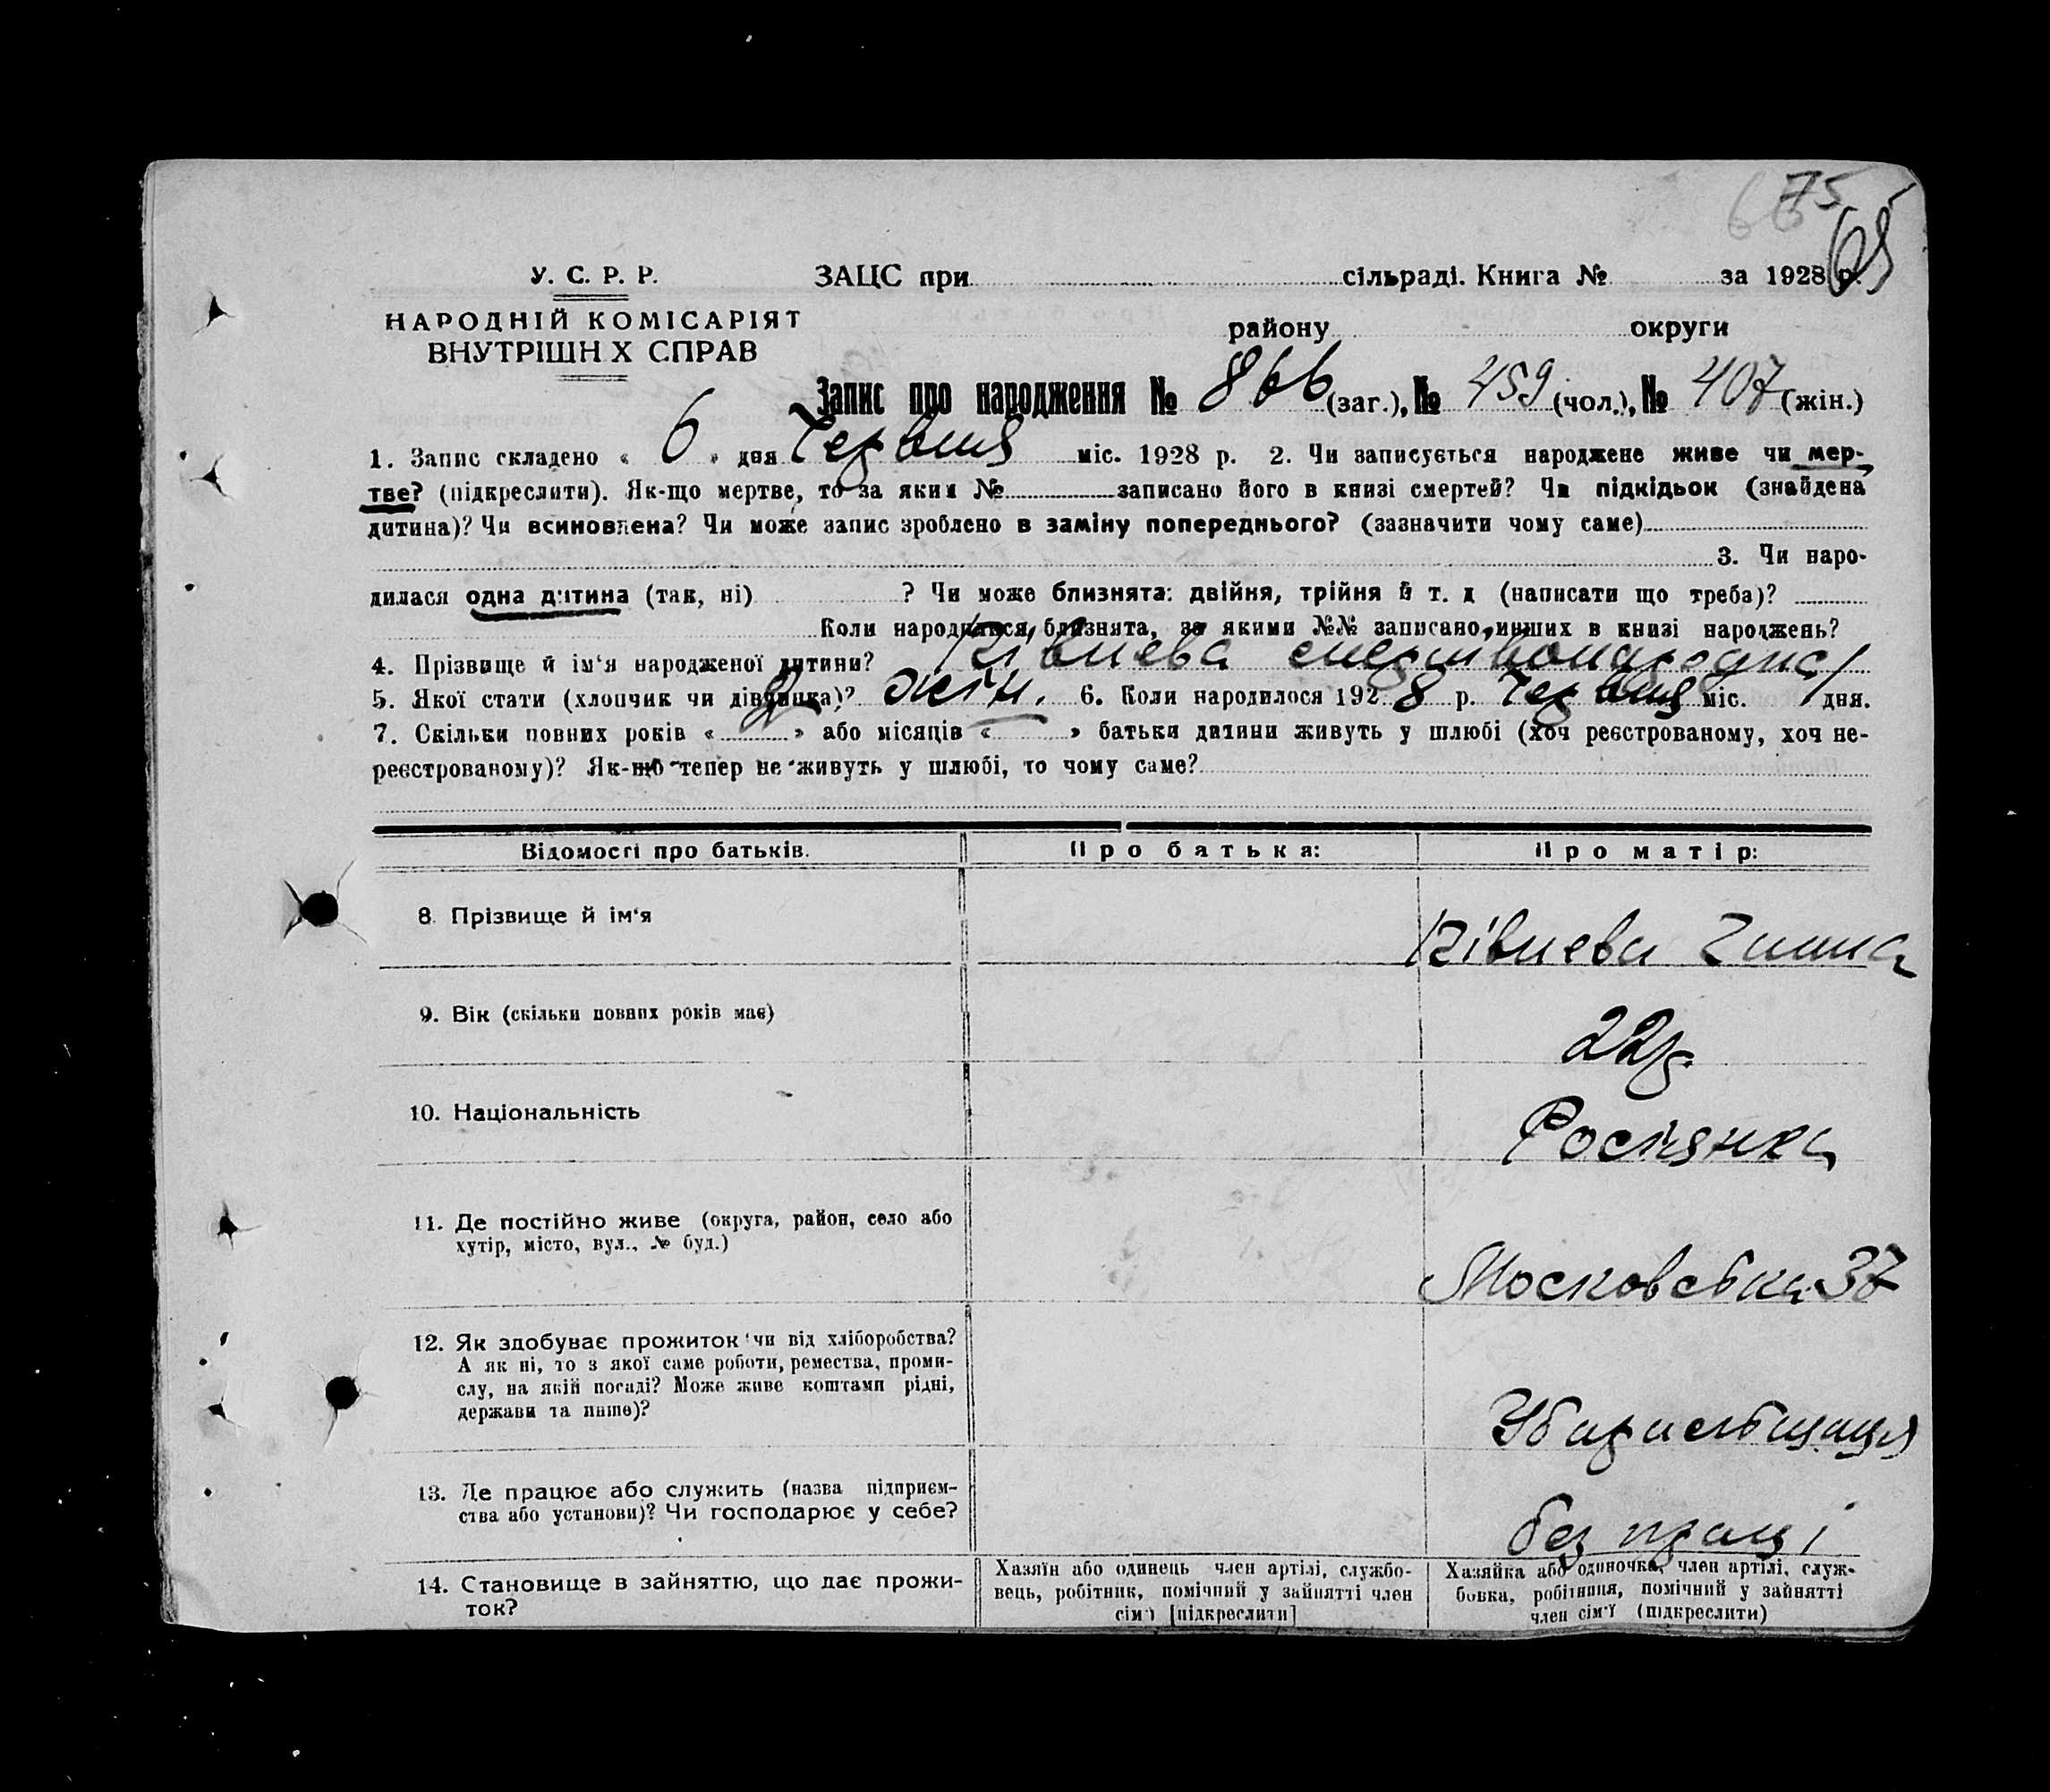 75
У. С. Р. Р. ЗАЦС при сільраді. Книга № за 1928 р.
НАРОДНІЙ КОМІСАРІЯТ
району округи
ВНУТРІШН Х СПРАВ
Запис про народження № 866 (заг.), № 459 (чол.), № 407 (жін.)
1. Запис складено « 6 » дня Червня міс. 1928 р. 2. Чи записується народжене живе чи мер-
тве? (підкреслити). Як-що мертве, то за яким № записано його в книзі смертей? Чи підкідьок (знайдена
дитина)? Чи всиновлена? Чи може запис зроблено в заміну попереднього? (зазначити чому саме)
3. Чи наро-
дилася одна дитина (так, ні) ? Чи може близнята: двійня, трійня й т. д (написати що треба)?
Коли народилися близнята, за якими №№ записано инших в книзі народжень?
4. Прізвище й ім‘я народженої дитини? мертвонароджена
5. Якої стати (хлопчик чи дівчинка)? жін. 6. Коли народилося 1928 р. Червня міс. 1 дня.
7. Скільки повних років « 2 » або місяців « — » батьки дитини живуть у шлюбі (хоч реєстрованому, хоч не-
реєстрованому)? Як-що тепер не живуть у шлюбі, то чому саме?
Відомості про батьків. Про батька: Про матір:
8. Прізвище й ім‘я
9. Вік (скільки повних років має) 22 р.
10. Національність Росіянка
11. Де постійно живе (округа, район, село або
хутір, місто, вул., № буд.) Московська 37
12. Як здобуває прожиток чи від хліборобства?
А як ні, то з якої саме роботи, ремества, проми-
слу, на якій посаді? Може живе коштами рідні,
держави та инше)? Убиральщиця
13. Де працює або служить (назва підприєм-
ства або установи)? Чи господарює у себе? без праці
14. Становище в зайняттю, що дає прожи-
ток?
Хазяїн або одинець член артілі, службо-
вець, робітник, помічний у зайнятті член
сім‘ї [підкреслити]
Хазяйка або одиночка, член артілі, служ-
бовка, робітниця, помічний у зайнятті
член сім‘ї (підкреслити)